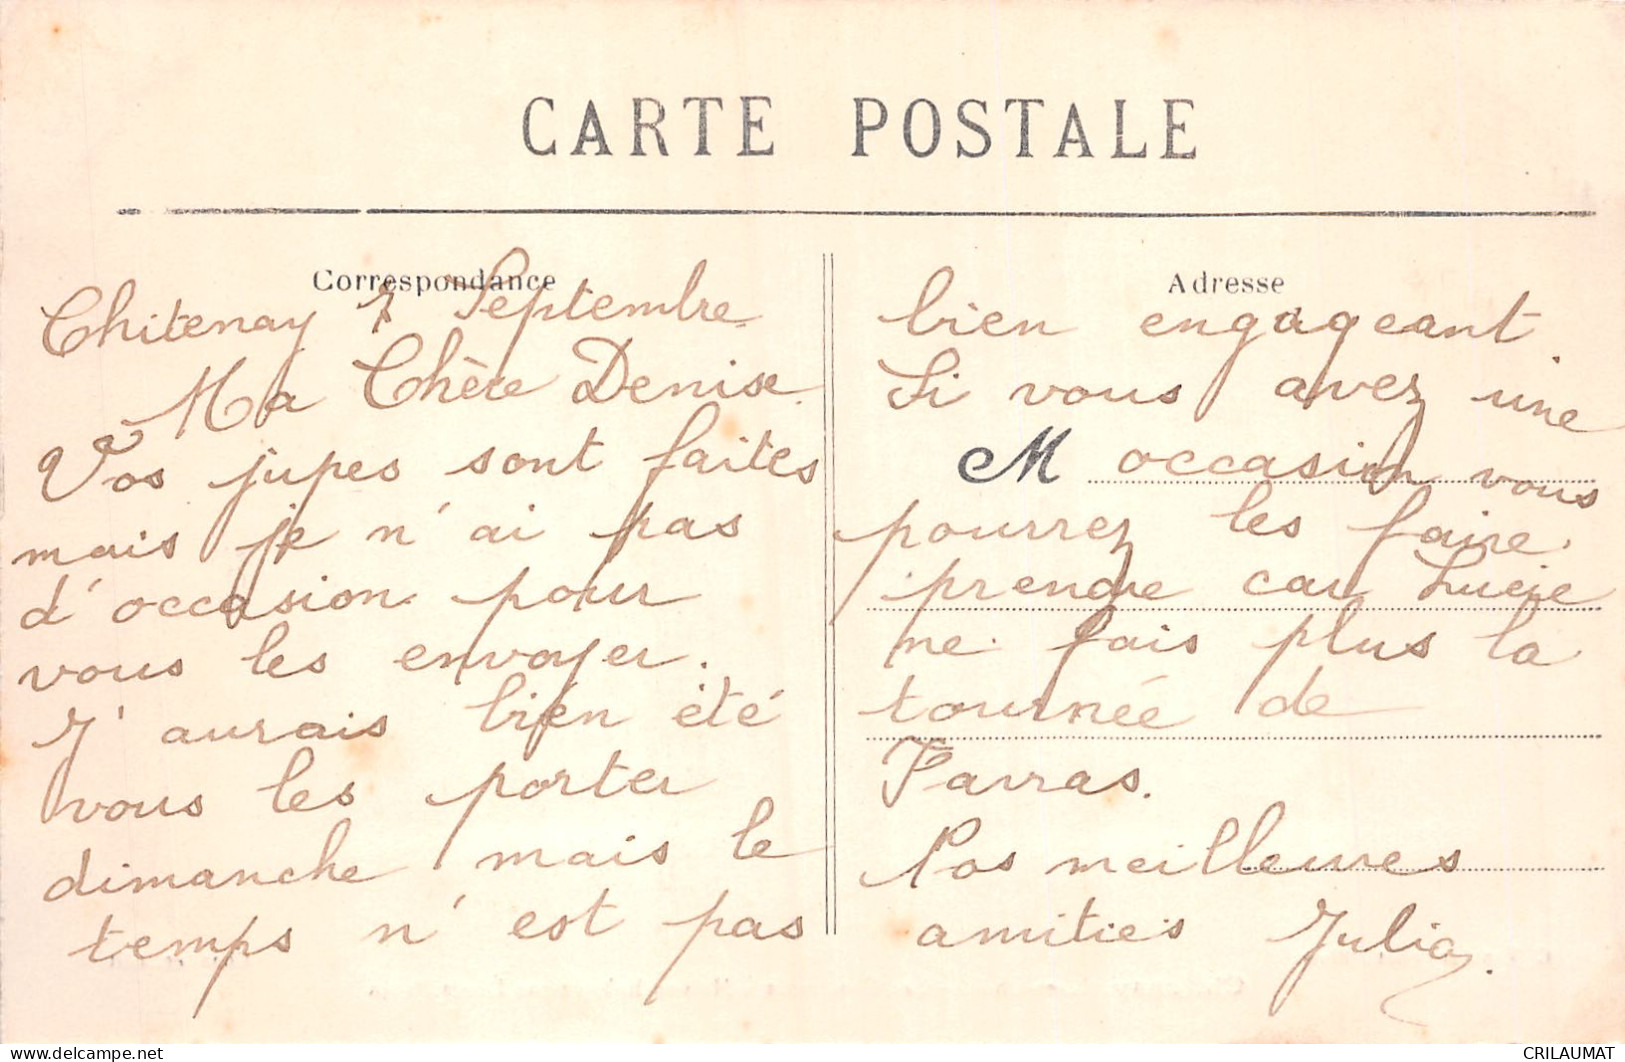 CARTE POSTALE
Correspondance
Chitenay 7 Septembre
Ma Chère Denise
Vos jupes sont faites
mais je n'ai pas
d'occasion pour
vous les envoyer.
J'aurais bien été
vous les porter
dimanche mais le
temps n'est pas
Adresse
bien engageant.
Si vous avez une
M occasion vous
pourrez les faire
prendre car Lucie
ne fais plus la
tournée de
Favras.
Nos meilleures
amities Julia.
CRILAUMAT